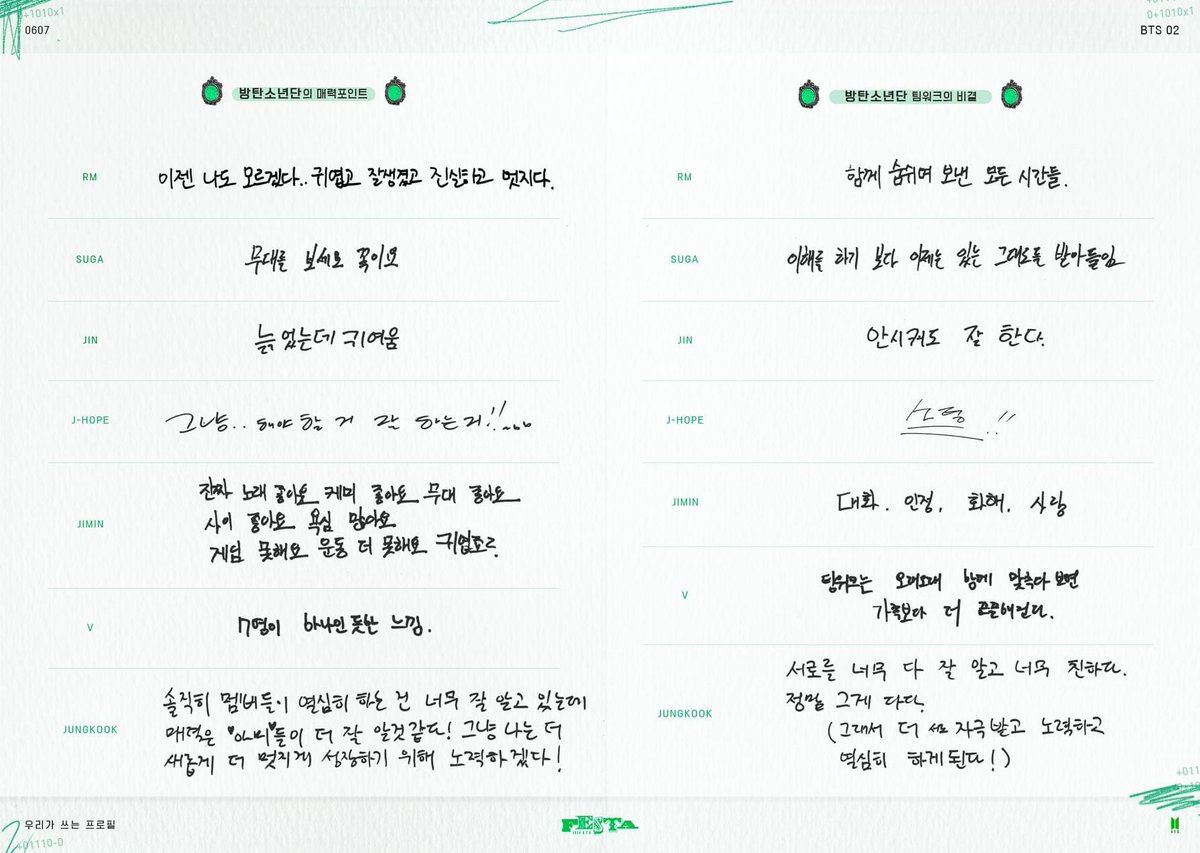 0+1010x1
0607
0+1010x1
BTS 02
방탄소년단의 매력포인트
RM
이젠 나도 모르겠다.. 귀엽고 잘생겼고 진실하고 멋지다.
SUGA
무대를 보세요 꼭이요
JIN
늙었는데 귀여움
J-HOPE
그냥.. 해야 할 거 잘 하는거!!
JIMIN
진짜 노래 좋아요 케미 좋아요 무대 좋아요
사이 좋아요 욕심 많아요
게임 못해요 운동 더 못해요 귀엽도르.
V
7명이 하나인듯한 느낌.
JUNGKOOK
솔직히 멤버들이 열심히 하는 건 너무 잘 알고 있는데
매력은 "아미"들이 더 잘 알것같다! 그냥 나는 더
새롭게 더 멋지게 성장하기 위해 노력하겠다!
방탄소년단 팀워크의 비결
RM
함께 숨쉬며 보낸 모든 시간들.
SUGA
이해를 하기 보다 이제는 있는 그대로를 받아들임
JIN
안시켜도 잘 한다.
J-HOPE
소통..!!
JIMIN
대화. 인정, 화해, 사랑
V
팀워크는 오래오래 함께 맞추다보면
가족보다 더 끈끈해진다.
JUNGKOOK
서로를 너무 다 잘 알고 너무 친하다.
정말 그게 다다.
(그래서 더 자극받고 노력하고
열심히 하게된다!)
우리가 쓰는 프로필
+01110-0
FESTA
BTS